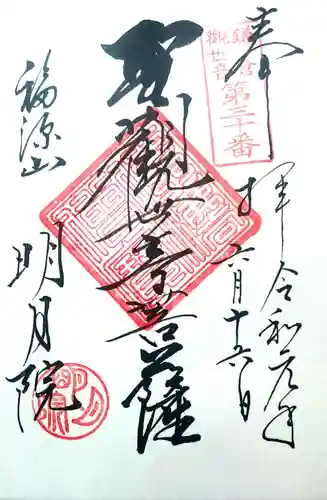 奉拝
令和元年
六月十六日
鎌倉
観世音
第三十番
聖観世音菩薩
福源山
明月院